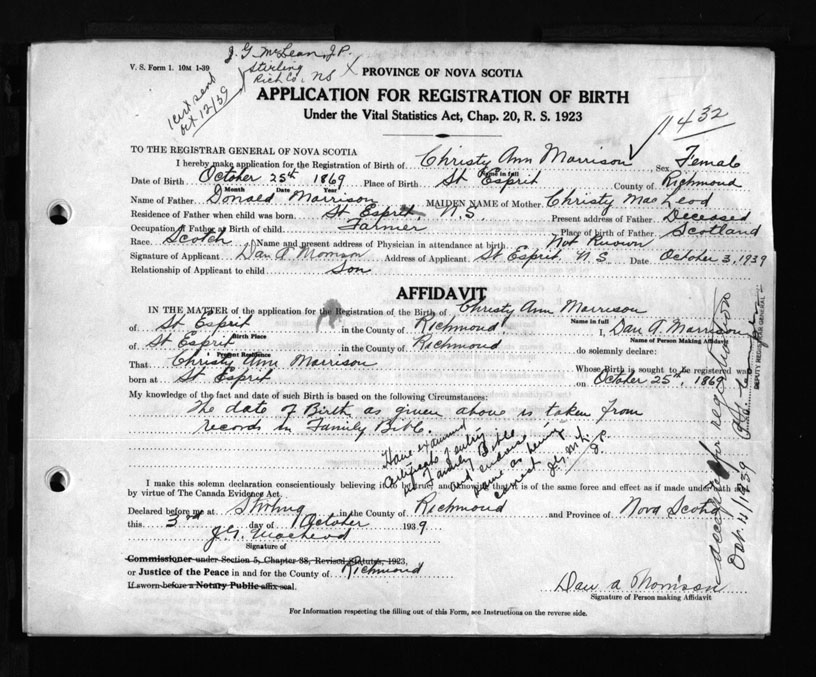 V. S. Form 1. 10M 1-39
J. G. McLean, J.P.
Stirling
Rich Co., NS X
1 cert sent
Oct 12/39
PROVINCE OF NOVA SCOTIA
APPLICATION FOR REGISTRATION OF BIRTH
Under the Vital Statistics Act, Chap. 20, R. S. 1923
1432
TO THE REGISTRAR GENERAL OF NOVA SCOTIA
I hereby make application for the Registration of Birth of Christy Ann Morrison Sex Female
Name in full
Date of Birth October 25th 1869 Place of Birth St Esprit County of Richmond
Month Date Year
Name of Father Donald Morrison MAIDEN NAME of Mother Christy Mac Leod
Residence of Father when child was born. St Esprit N.S. Present address of Father Deceased
Occupation of Father at Birth of child. Farmer Place of Birth of Father Scotland
Race. Scotch Name and present address of Physician in attendance at birth Not Known
Signature of Applicant Dan A Morrison Address of Applicant St Esprit N.S. Date October 3, 1939
Relationship of Applicant to child Son
AFFIDAVIT
IN THE MATTER of the application for the Registration of the Birth of Christy Ann Morrison
Name in full
of St Esprit in the County of Richmond I, Dan A. Morrison
Birth Place Name of Person Making Affidavit
of St Esprit in the County of Richmond do solemnly declare:
Present Residence
That Christy Ann Morrison Whose Birth is sought to be registered was
born at St Esprit on October 25th, 1869
My knowledge of the fact and date of such Birth is based on the following Circumstances:
The date of Birth as given above is taken from
records in Family Bible.
Have examined
certificate of entry
in Family Bible
and endorse
same as being
correct J.G. McL.
J.P.
I make this solemn declaration conscientiously believing it to be true, and knowing that it is of the same force and effect as if made under oath and
by virtue of The Canada Evidence Act.
Declared before me at Stirling in the County of Richmond and Province of Nova Scotia
this 3rd day of October 1939
Signature of
Commissioner under Section 5, Chapter 38, Revised Statutes, 1923,
or Justice of the Peace in and for the County of Richmond
If sworn before a Notary Public affix seal.
Dan A Morrison
Signature of Person making Affidavit
For Information respecting the filling out of this Form, see Instructions on the reverse side.
accepted for registration
Oct 11/1939
DEPUTY REGISTRAR GENERAL